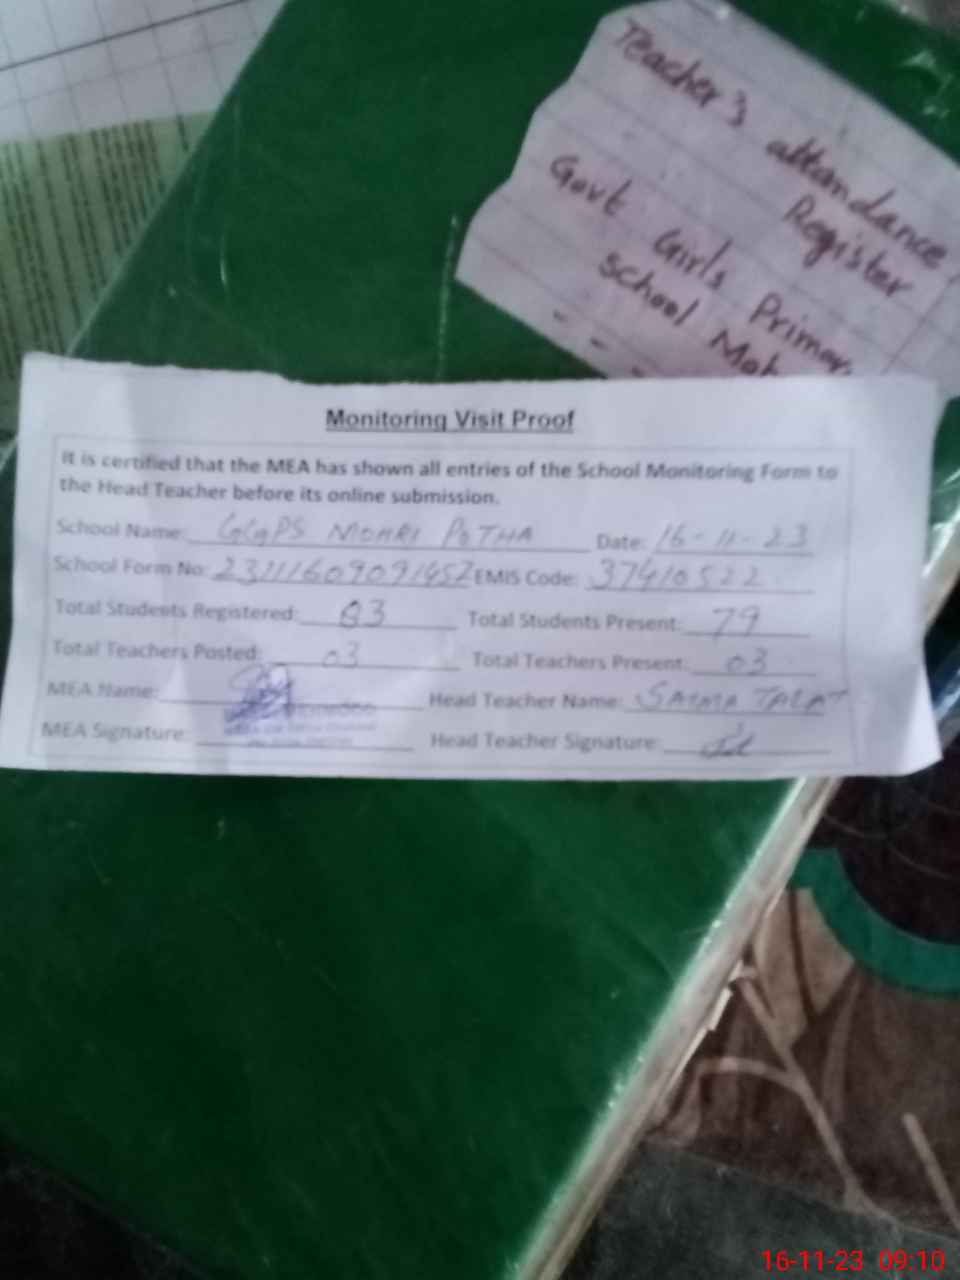 Teacher's attendance
Register
Govt Girls Primary
School Moh
Monitoring Visit Proof
It is certified that the MEA has shown all entries of the School Monitoring Form to
the Head Teacher before its online submission.
School Name: GGPS MOHRI POTHA Date: 16-11-23
School Form No: 23111609091452 EMIS Code: 37410522
Total Students Registered: 83 Total Students Present: 79
Total Teachers Posted: 03 Total Teachers Present: 03
MEA Name: Head Teacher Name: SAIMA TALAT
MEA Signature: Head Teacher Signature:
16-11-23 09:10